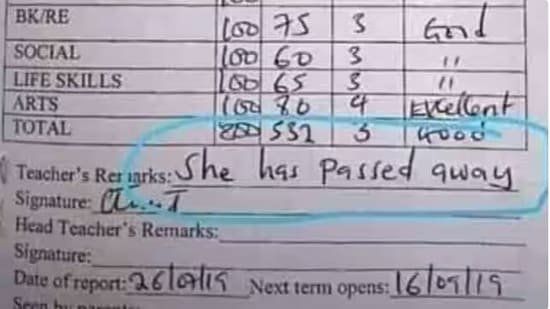 BK/RE 100 75 3 Good
SOCIAL 100 60 3 "
LIFE SKILLS 100 65 3 "
ARTS 100 80 4 Excellent
TOTAL 800 532 3 Good
Teacher's Remarks: She has passed away
Signature:
Head Teacher's Remarks:
Signature:
Date of report: 26/07/19 Next term opens: 16/09/19
Seen by